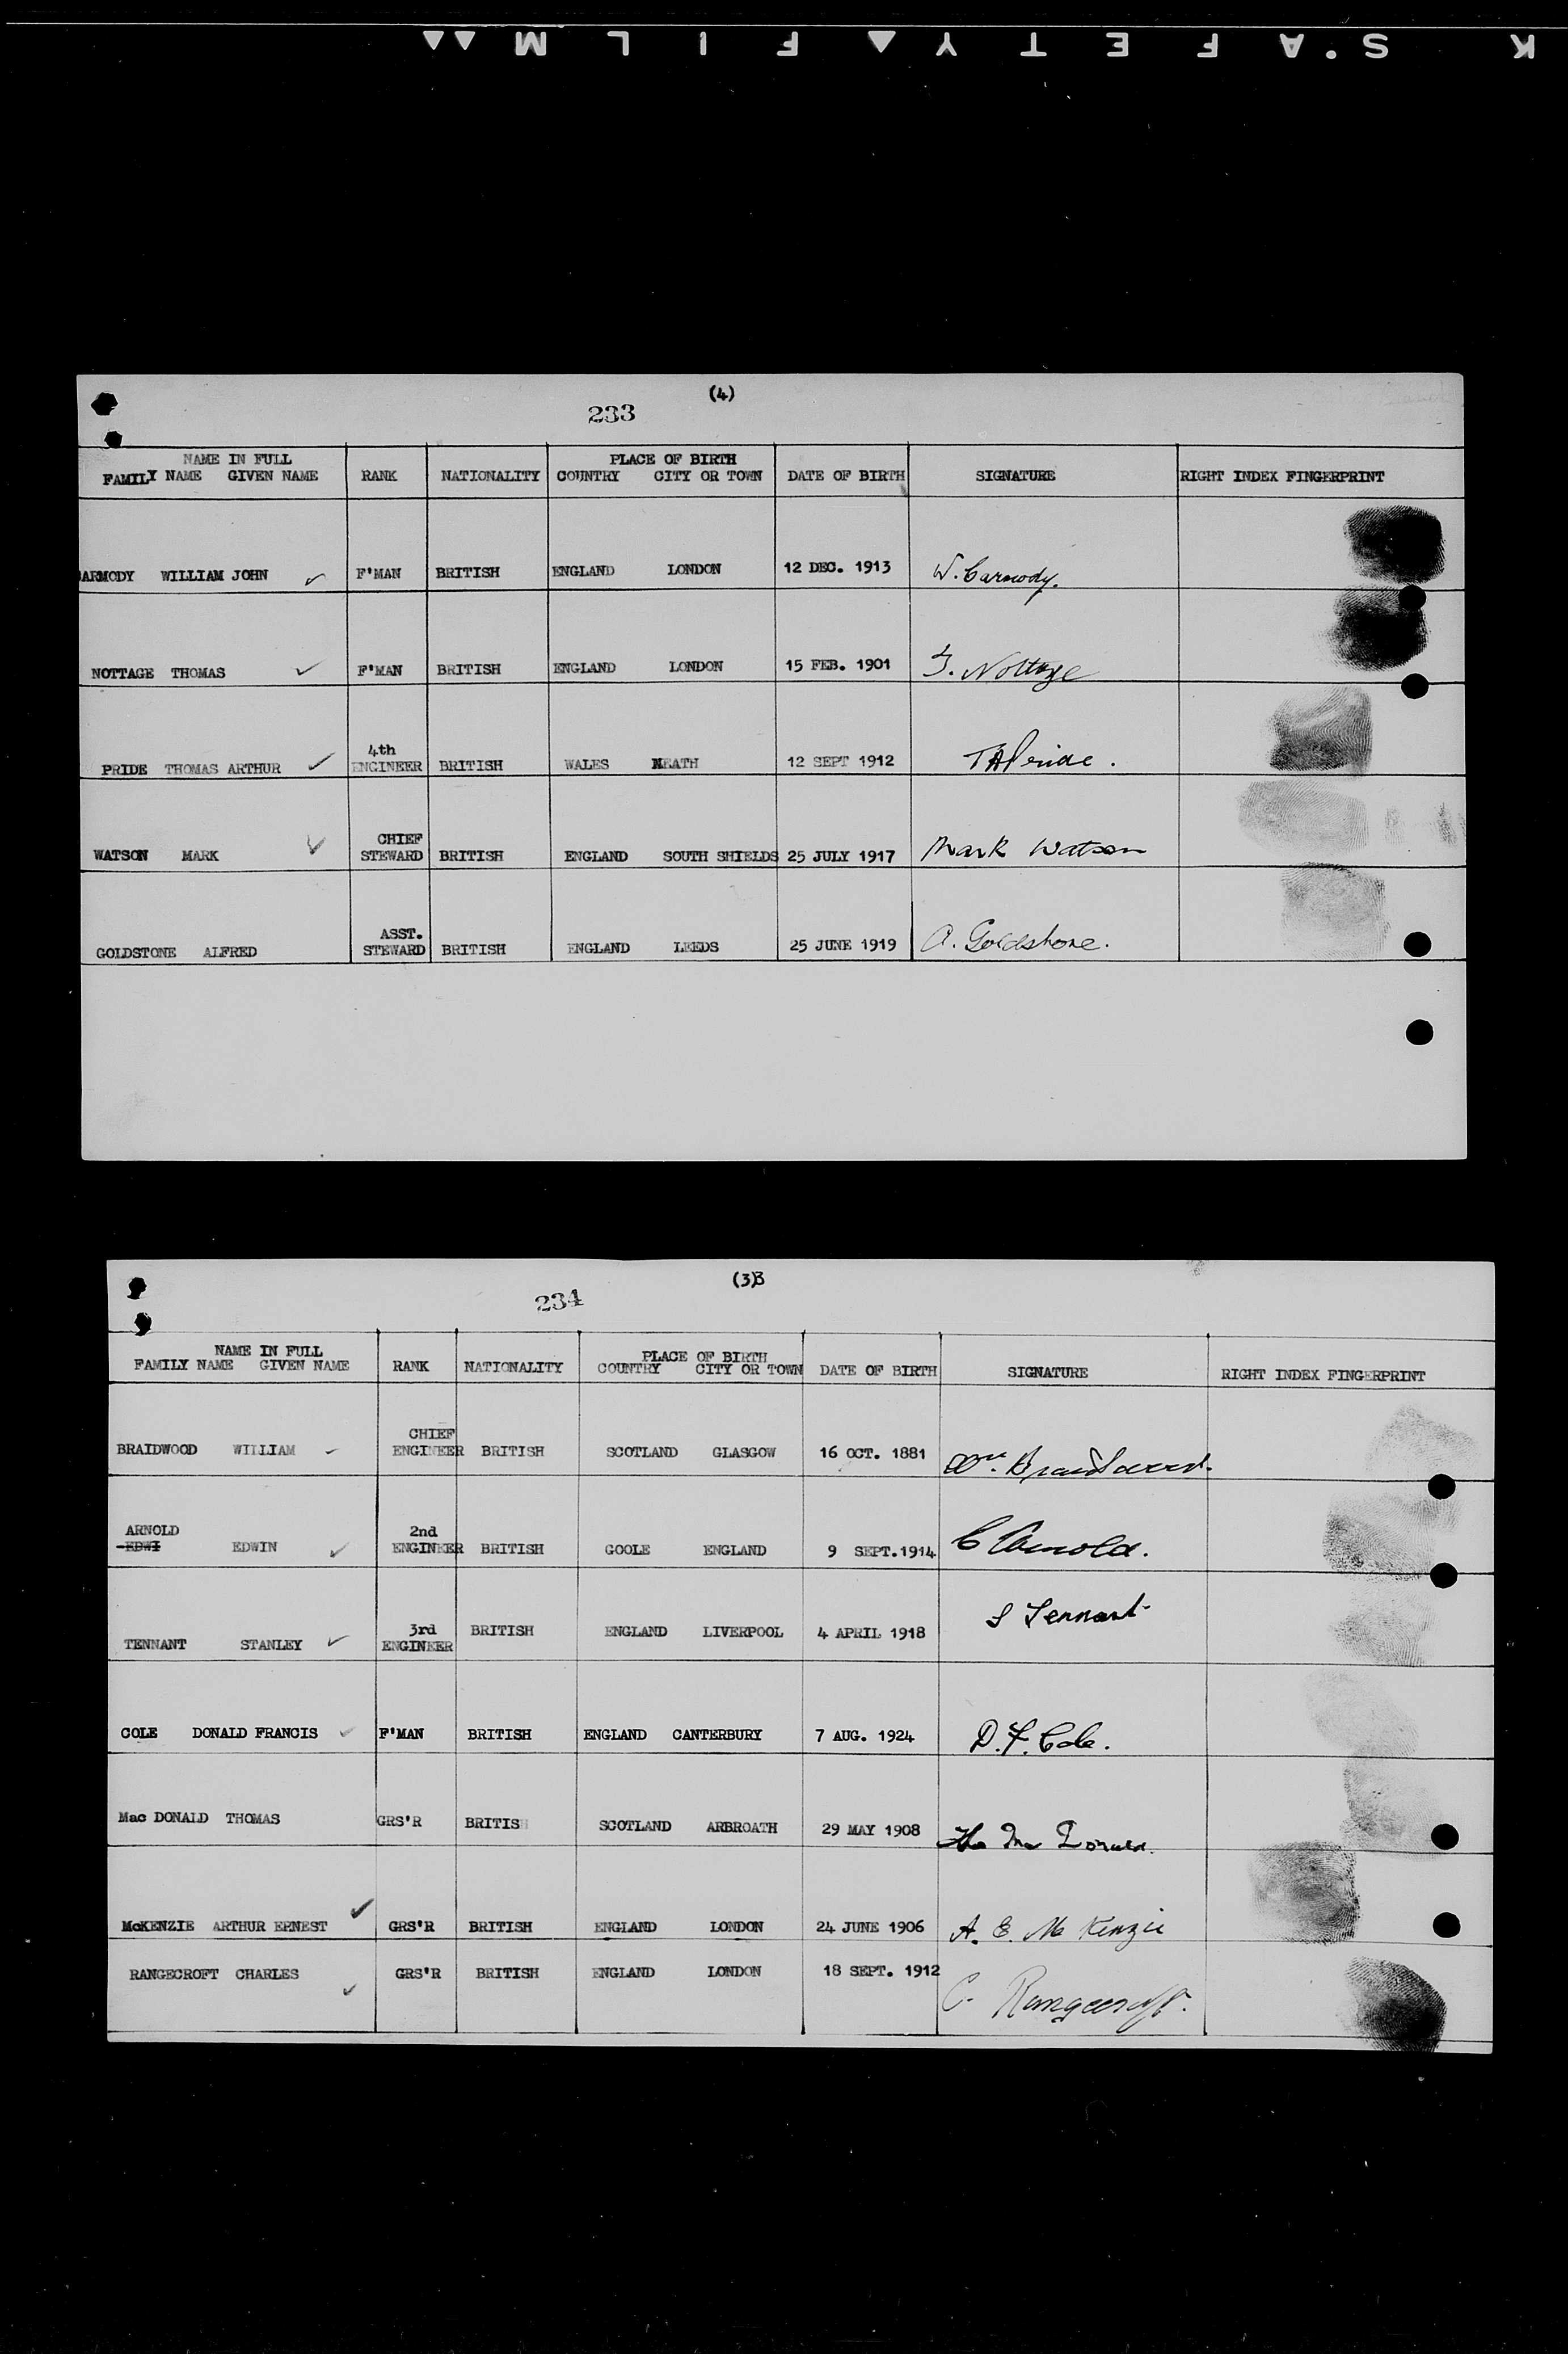 K S'AFETY ▲ FILM ▲▲
(4)
233
NAME IN FULL PLACE OF BIRTH
FAMILY NAME GIVEN NAME RANK NATIONALITY COUNTRY CITY OR TOWN DATE OF BIRTH SIGNATURE RIGHT INDEX FINGERPRINT
ARMODY WILLIAM JOHN ✓ F'MAN BRITISH ENGLAND LONDON 12 DEC. 1913 W. Carmody.
NOTTAGE THOMAS ✓ F'MAN BRITISH ENGLAND LONDON 15 FEB. 1901 T. Nottage
4th
PRIDE THOMAS ARTHUR ✓ ENGINEER BRITISH WALES NEATH 12 SEPT 1912 TAPride.
CHIEF
WATSON MARK ✓ STEWARD BRITISH ENGLAND SOUTH SHIELDS 25 JULY 1917 Mark Watson
ASST.
GOLDSTONE ALFRED STEWARD BRITISH ENGLAND LEEDS 25 JUNE 1919 A. Goldstone.
(3)B
234
NAME IN FULL PLACE OF BIRTH
FAMILY NAME GIVEN NAME RANK NATIONALITY COUNTRY CITY OR TOWN DATE OF BIRTH SIGNATURE RIGHT INDEX FINGERPRINT
CHIEF
BRAIDWOOD WILLIAM ✓ ENGINEER BRITISH SCOTLAND GLASGOW 16 OCT. 1881 Wm. Braidwood.
ARNOLD 2nd
EDWI EDWIN ✓ ENGINEER BRITISH GOOLE ENGLAND 9 SEPT.1914 E Arnold.
3rd S Tennant
TENNANT STANLEY ✓ ENGINEER BRITISH ENGLAND LIVERPOOL 4 APRIL 1918
COLE DONALD FRANCIS ✓ F'MAN BRITISH ENGLAND CANTERBURY 7 AUG. 1924 D.F. Cole.
Mac DONALD THOMAS GRS'R BRITISH SCOTLAND ARBROATH 29 MAY 1908 Tho Mac Donald.
McKENZIE ARTHUR ERNEST ✓ GRS'R BRITISH ENGLAND LONDON 24 JUNE 1906 A. E. Mc Kenzie
RANGECROFT CHARLES ✓ GRS'R BRITISH ENGLAND LONDON 18 SEPT. 1912 C. Rangecroft.